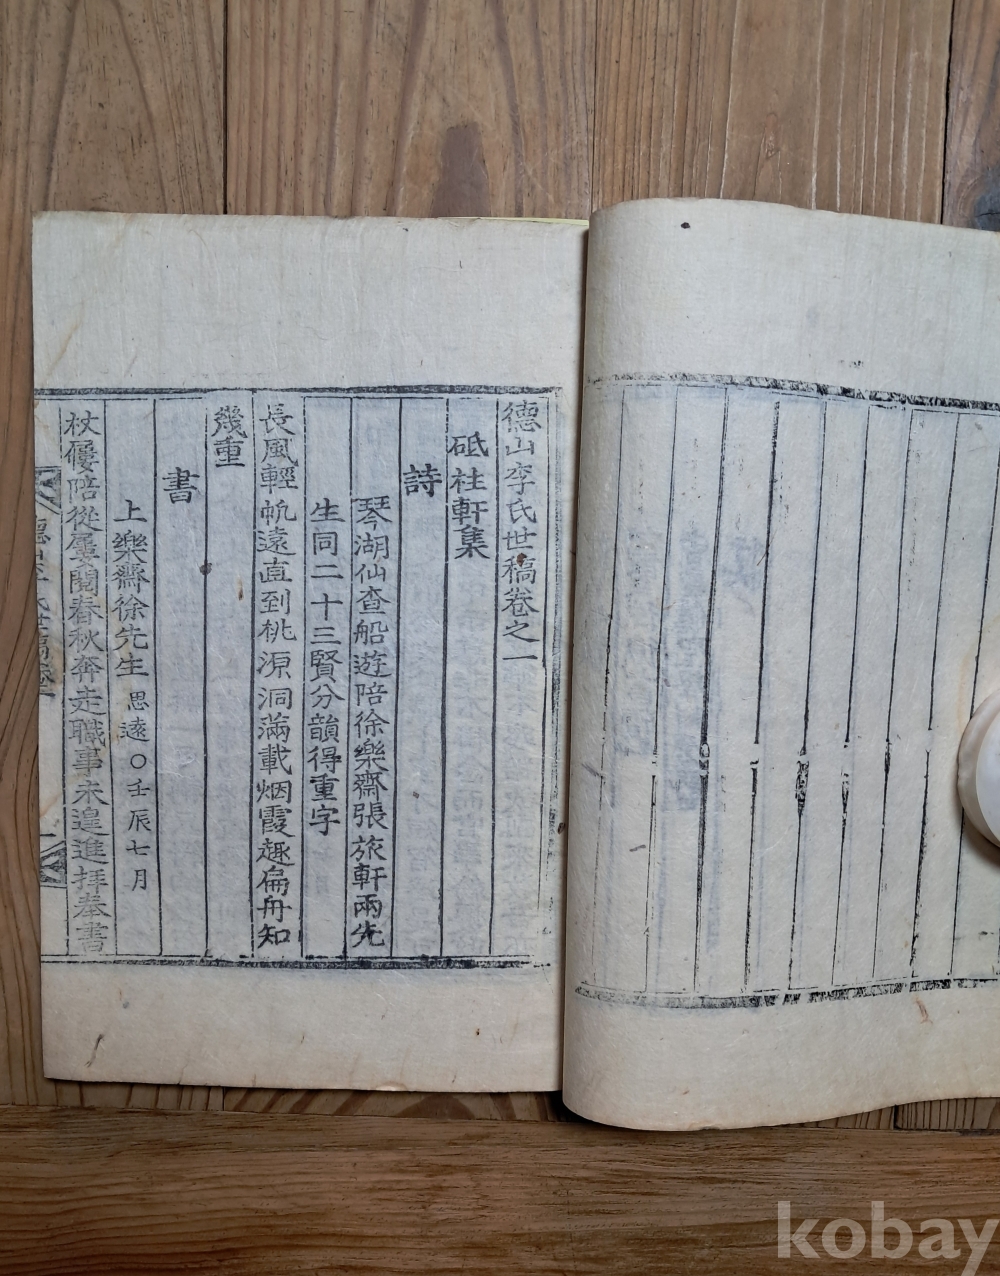 德山李氏世稿卷之一
砥柱軒集
詩
琴湖仙查船遊陪徐樂齋張旅軒兩先
生同二十三賢分韻得重字
長風輕帆遠直到桃源洞滿載烟霞趣扁舟知
幾重
書
上樂齋徐先生 思遠〇壬辰七月
杖屨陪從屢閱春秋奔走職事未遑進拜奉書
kobay